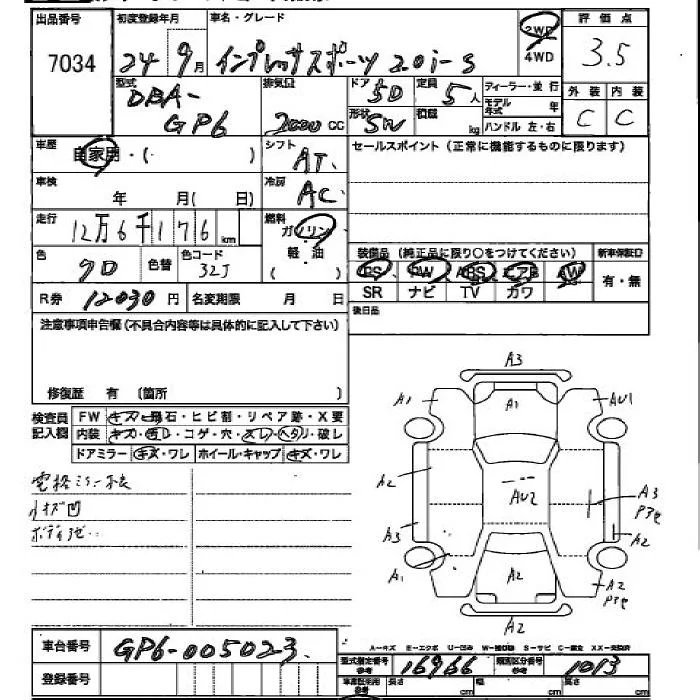 出品番号 初度登録年月 車名・グレード 2WD 評価点
7034 24 9月 インプレッサスポーツ 2.0i-S 4WD 3.5
型式 DBA-GP6 排気量 2000 cc ドア 5D 定員 5人 ディーラー・並行 外装 内装
形状 SW 積載 kg モデル年式 年 ハンドル 左・右 C C
車歴 自家用・( ) シフト AT セールスポイント(正常に機能するものに限ります)
車検 年 月( 日) 冷房 AC
走行 12万6千176 km 燃料 ガソリン
色 クロ 色替 色コード 32J 軽・油 ( )
装備品(純正品に限り〇をつけてください) 新車保証書
PS PW ABS エアB AW 有・無
SR ナビ TV カワ
R券 12030円 名変期限 月 日 後日品
注意事項申告欄(不具合内容等は具体的に記入して下さい)
修復歴 有 〔箇所 〕
検査員記入欄 FW キズ・飛石・ヒビ割・リペア跡・X要
内装 キズ・汚レ・コゲ・穴・スレ・ヘタリ・破レ
ドアミラー キズ・ワレ ホイール・キャップ キズ・ワレ
小キズ凹
A3
A1 A1 AU1
A2 AU2 A3
A3 A2
A1 A2 A2
A2
A-キズ E-エクボ U-凹み W-補修跡 S-サビ C-腐食 XX-交換済
車台番号 GP6-005023 型式指定番号 参考 16966 類別区分番号 参考 1013
登録番号 長さ cm 幅 cm 高さ cm